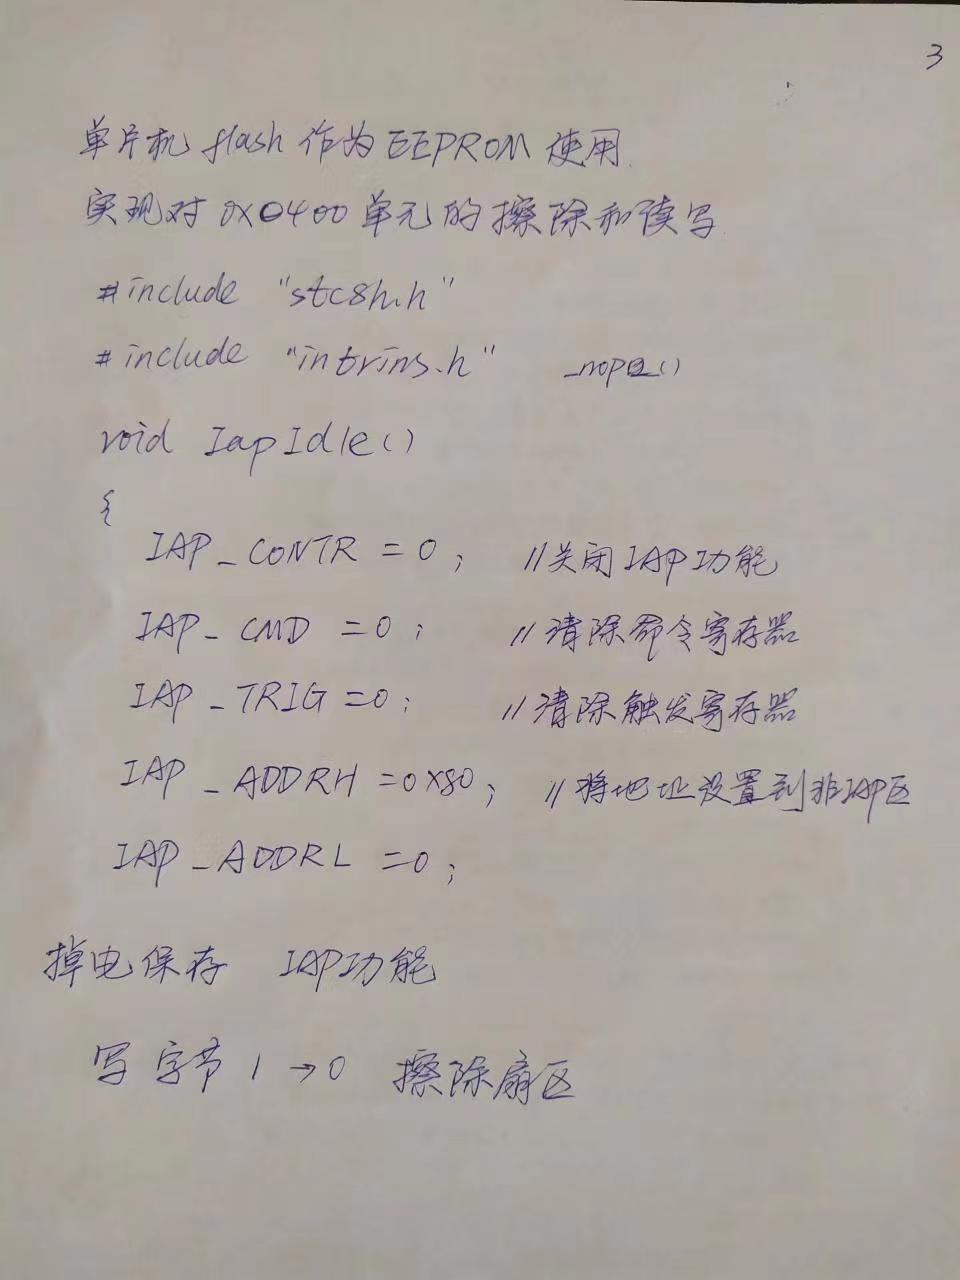 3
单片机 flash 作为 EEPROM 使用
实现对 0x0400 单元的擦除和读写
#include "stc8h.h"
#include "intrins.h" _nop_()
void IapIdle()
{
IAP_CONTR = 0; //关闭IAP功能
IAP_CMD = 0; //清除命令寄存器
IAP_TRIG = 0; //清除触发寄存器
IAP_ADDRH = 0X80; //将地址设置到非IAP区
IAP_ADDRL = 0;
掉电保存 IAP功能
写字节 1 → 0 擦除扇区